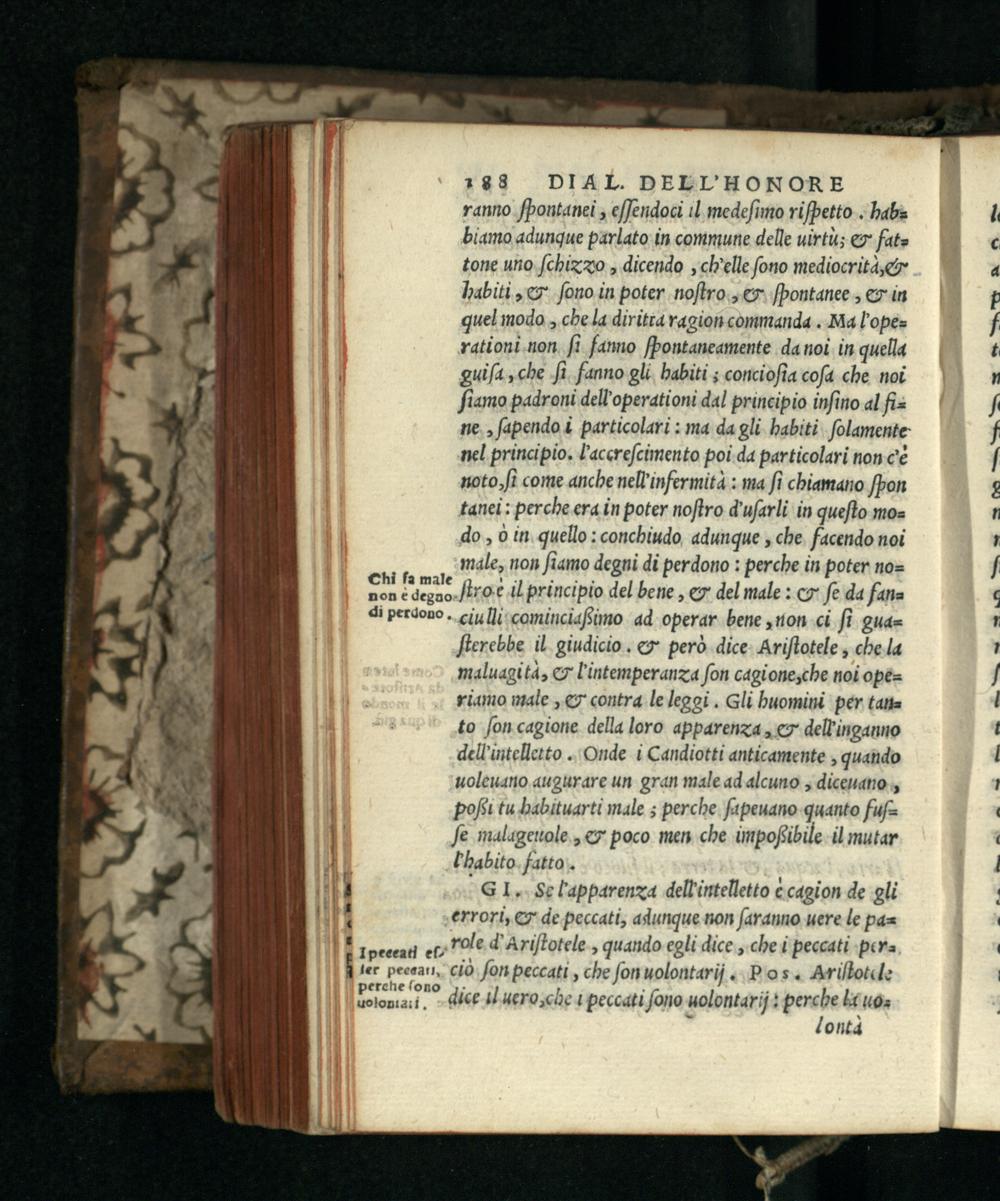 188 DIAL. DELL'HONORE
ranno ſpontanei, eſſendoci il medeſimo riſpetto. hab=
biamo adunque parlato in commune delle uirtù; & fat=
tone uno ſchizzo, dicendo, ch'elle ſono mediocrità, &
habiti, & ſono in poter noſtro, & ſpontanee, & in
quel modo, che la diritta ragion commanda. Ma l'ope=
rationi non ſi fanno ſpontaneamente da noi in quella
guiſa, che ſi fanno gli habiti; concioſia coſa che noi
ſiamo padroni dell'operationi dal principio inſino al fi=
ne, ſapendo i particolari: ma da gli habiti ſolamente
nel principio. l'accreſcimento poi da particolari non c'è
noto, ſi come anche nell'infermità: ma ſi chiamano ſpon
tanei: perche era in poter noſtro d'uſarli in queſto mo=
do, ò in quello: conchiudo adunque, che facendo noi
male, non ſiamo degni di perdono: perche in poter no=
Chi fa male
non è degno
di perdono.
ſtro è il principio del bene, & del male: & ſe da fan=
ciulli cominciaßimo ad operar bene, non ci ſi gua=
ſterebbe il giudicio. & però dice Ariſtotele, che la
maluagità, & l'intemperanza ſon cagione, che noi ope=
riamo male, & contra le leggi. Gli huomini per tan=
to ſon cagione della loro apparenza, & dell'inganno
dell'intelletto. Onde i Candiotti anticamente, quando
uoleuano augurare un gran male ad alcuno, diceuano,
poßi tu habituarti male; perche ſapeuano quanto fuſ=
ſe malageuole, & poco men che impoßibile il mutar
l'habito fatto.
GI. Se l'apparenza dell'intelletto è cagion de gli
errori, & de peccati, adunque non ſaranno uere le pa=
role d'Ariſtotele, quando egli dice, che i peccati per=
I peccati eſ=
ſer peccati,
perche ſono
uolontari.
ciò ſon peccati, che ſon uolontarij. Pos. Ariſtotele
dice il uero, che i peccati ſono uolontarij: perche la uo=
lontà